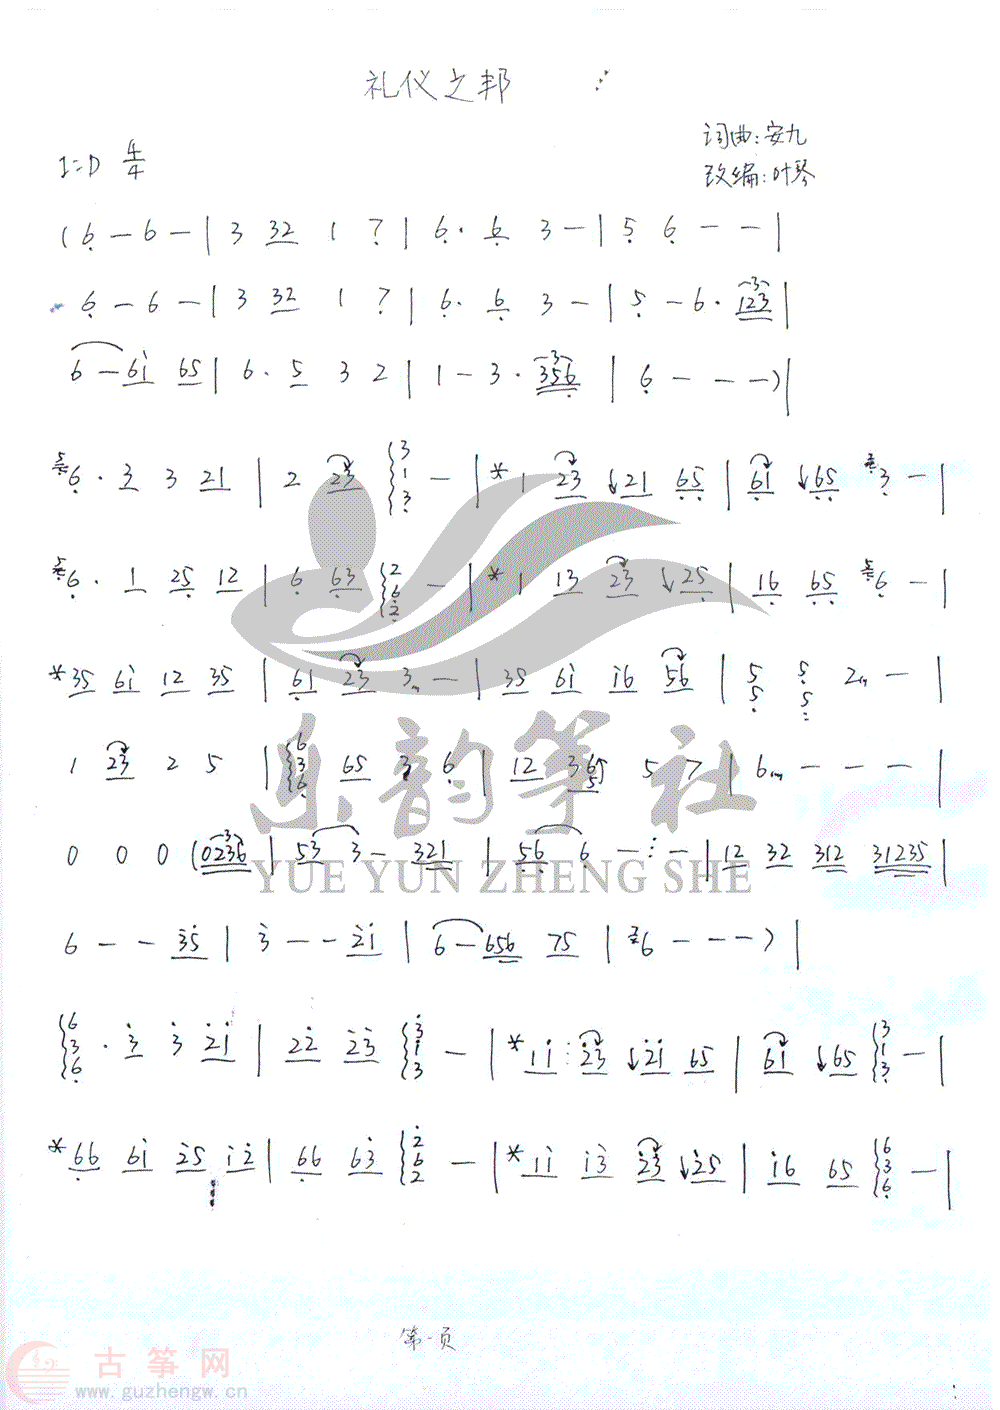 礼仪之邦
词曲:安九
1=D 4/4
改编:叶琴
(6 — 6 — | 3 32 1 7 | 6 · 6 3 — | 5 6 — — |
6 — 6 — | 3 32 1 7 | 6 · 6 3 — | 5 — 6 · 123 |
6 — 61 65 | 6 · 5 3 2 | 1 — 3 · 356 | 6 — — —) |
6 · 3 3 21 | 2 23 3 1 3 — | * 1 23 ↓21 65 | 61 ↓65 3 — |
6 · 1 25 12 | 6 63 2 6 2 — | * 1 13 23 ↓25 | 16 65 6 — |
* 35 61 12 35 | 61 23 3 — | 35 61 16 56 | 5 5 5 5 2 — |
1 23 2 5 | 6 3 6 65 3 6 | 12 365 5 7 | 6 — — — |
0 0 0 (0236 | 53 3 — 321 | 56 6 — — | 12 32 312 31235 |
YUE YUN ZHENG SHE
乐韵筝社
6 — — 35 | 3 — — 21 | 6 — 656 75 | 6 — — —) |
6 3 6 · 3 3 21 | 22 23 3 1 3 — | * 11 23 ↓21 65 | 61 ↓65 3 1 3 — |
* 66 61 25 12 | 66 63 2 6 2 — | * 11 13 23 ↓25 | 16 65 6 3 6 — |
第一页
古筝网
www.guzhengw.cn